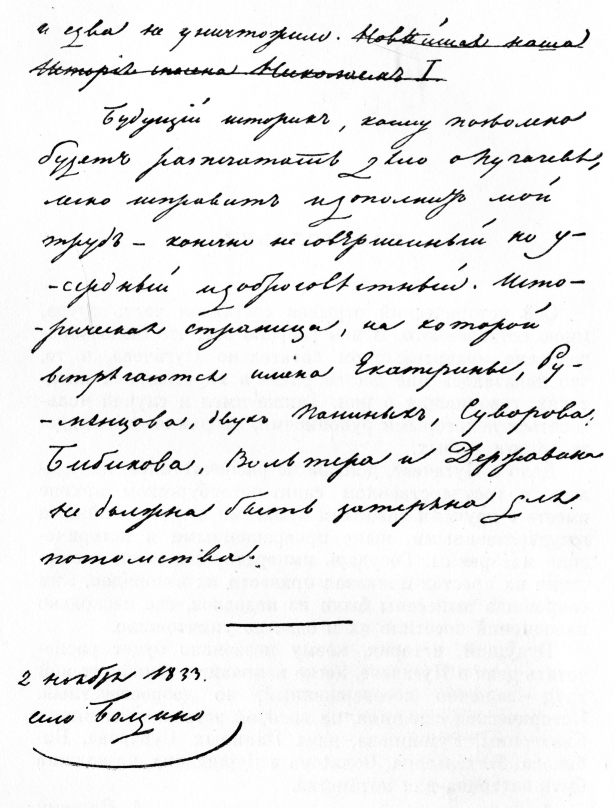 и едва не уничтожило. Новѣйшая наша
Исторія спасена Николаемъ I.
Будущій историкъ, коему позволено
будетъ распечатать дѣло о Пугачевѣ,
легко исправитъ и дополнитъ мой
трудъ — конечно несовершенный но у-
-сердный и добросовѣстный. Исто-
-рическая страница, на которой
встрѣчаются имена Екатерины, Ру-
-мянцова, двух Паниныхъ, Суворова,
Бибикова, Вольтера и Державина
не должна быть затеряна для
потомства.
2 ноября 1833.
село Болдино